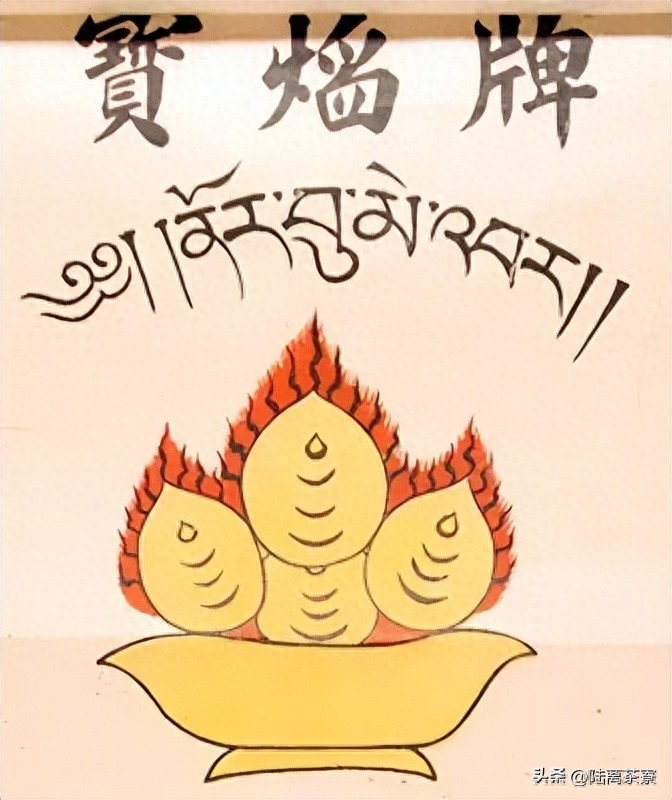 寶焰牌
༄༅། །ནོར་བུ་མེ་འབར།།
头条 @陆离茶寮